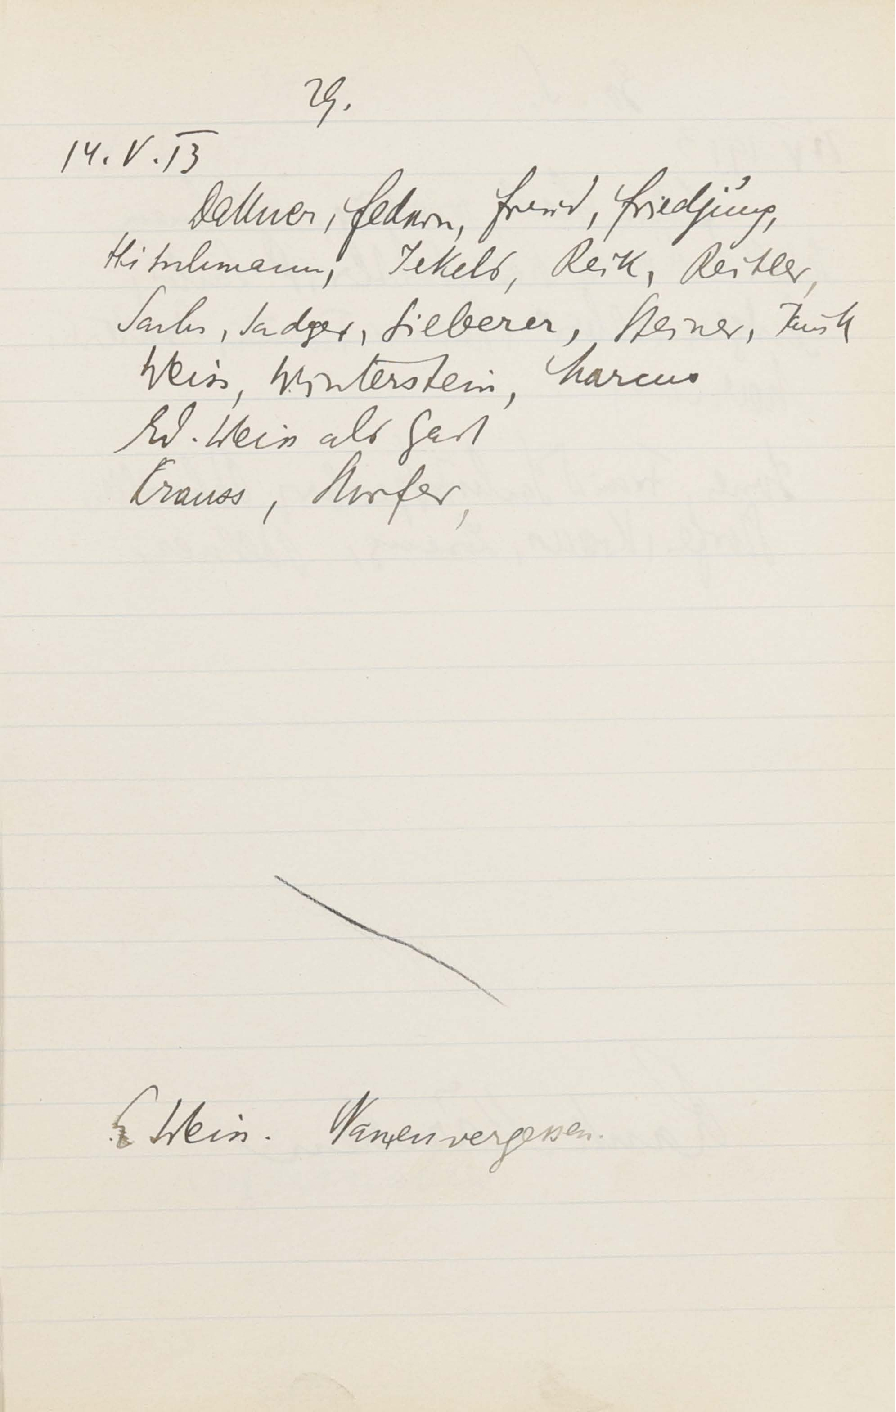 29.
14. V. 13
Dattner, Federn, Freud, Friedjung,
Hitschmann, Jekels, Reik, Reitler,
Sachs, Sadger, Silberer, Steiner, Tausk
Weiss, Winterstein, Marcus
Ed. Weiss als Gast
Krauss, Storfer,
E Weiss. Namenvergessen.